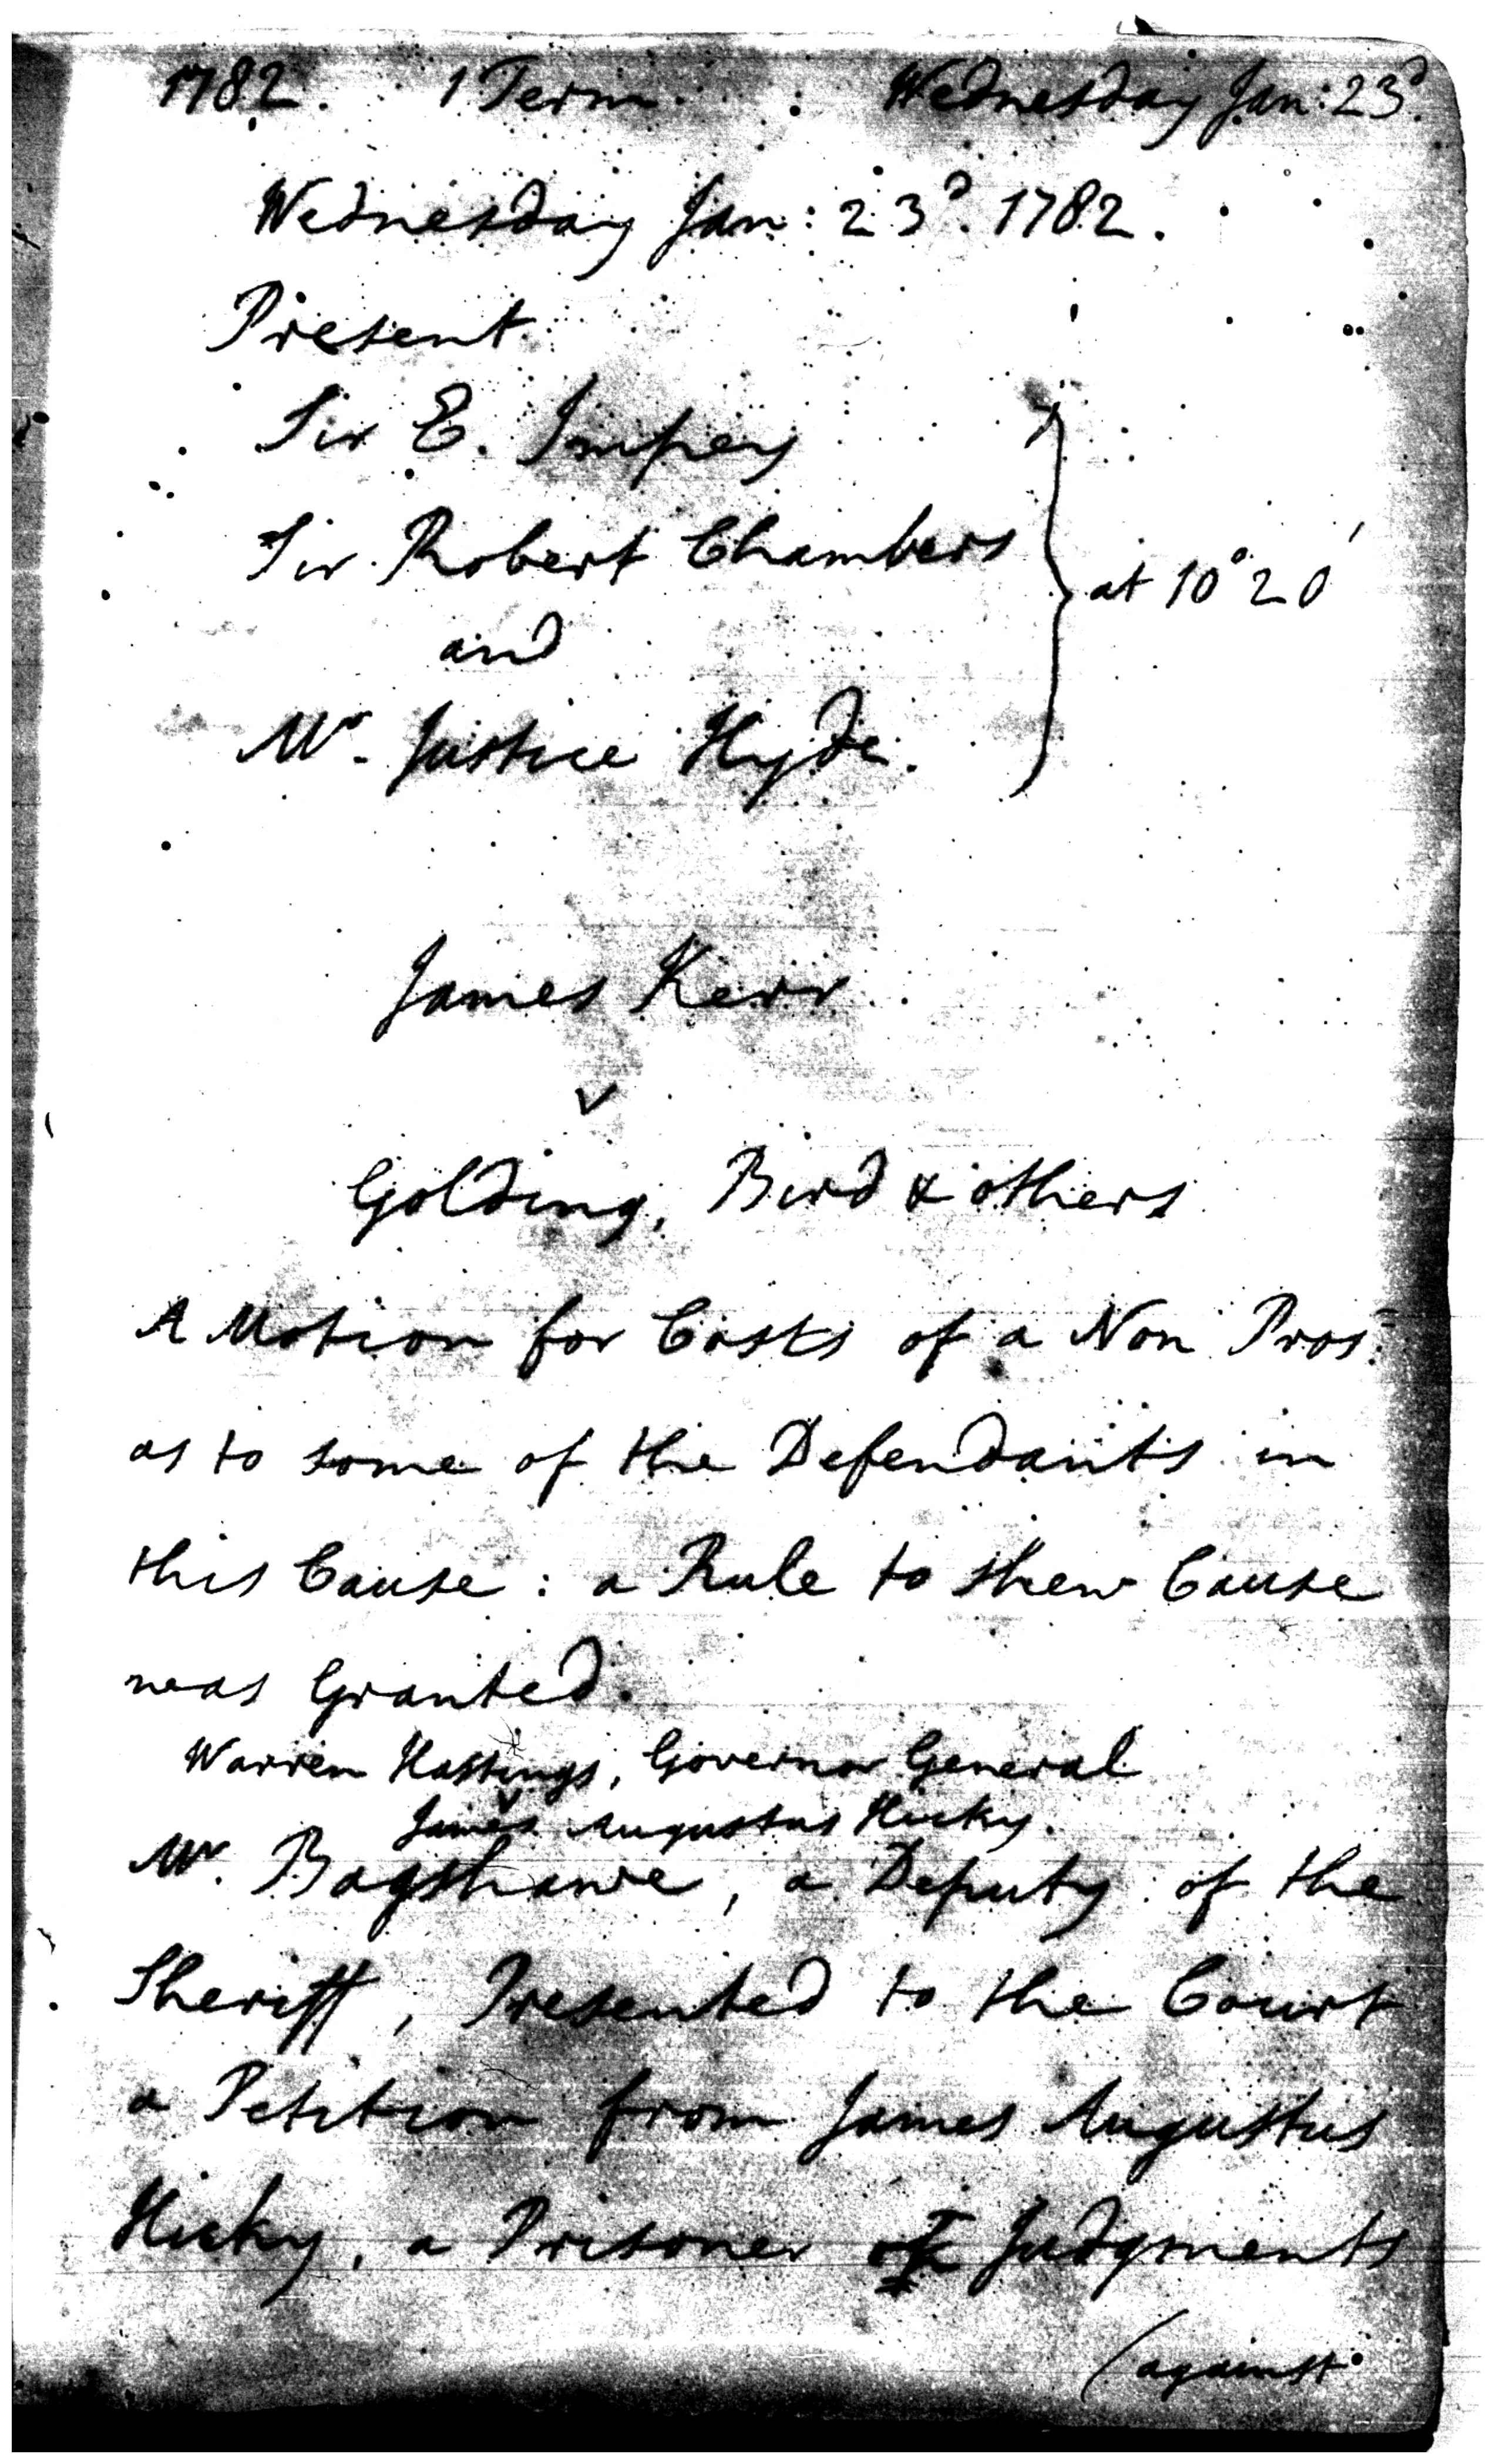 1782. 1 Term. Wednesday Jan: 23d.
Wednesday Jan: 23d. 1782.
Present
Sir E. Impey
Sir Robert Chambers
and
at 10° 20'
Mr. Justice Hyde.
James Kerr
v
Golding, Bird & others
A Motion for Costs of a Non Pros:
as to some of the Defendants in
this Cause: a Rule to shew Cause
was Granted.
Warren Hastings, Governor General
v
James Augustus Hicky.
Mr. Bagshawe, a Deputy of the
Sheriff, Presented to the Court
a Petition from James Augustus
Hicky, a Prisoner Judgments
(against